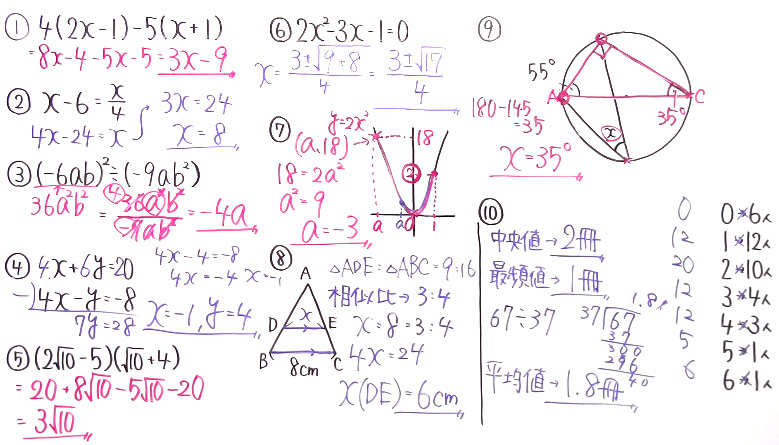 ① 4(2x-1)-5(x+1)
=8x-4-5x-5=3x-9
② x-6=x/4
4x-24=x
3x=24
x=8
③ (-6ab)²÷(-9ab²)
36a²b²
=④36a²b²/-9ab²=-4a
④ 4x+6y=20
-)4x-y=-8
7y=28
4x-4=-8
4x=-4 x=-1
x=-1,y=4
⑤ (2√10-5)(√10+4)
=20+8√10-5√10-20
=3√10
⑥ 2x²-3x-1=0
x=3±√9+8/4=3±√17/4
⑦ y=2x²
(a,18)
18
18=2a²
a²=9
a=-3
a a 0 1
⑧ △ADE:△ABC=9:16
相似比→3:4
x:8=3:4
4x=24
x(DE)=6cm
A
D x E
B C
8cm
⑨
55°
A C
35°
180-145
=35
x
x=35°
⑩
中央値→2冊
最頻値→1冊
67÷37
1.8
37)67
37
300
296
40
平均値→1.8冊
0
12
20
12
12
5
6
0*6人
1*12人
2*10人
3*4人
4*3人
5*1人
6*1人